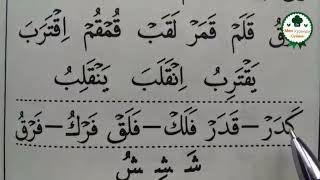 قُ قَلَم قَمَرْ لَقَبَ قُمْقُمْ اِقْتَرَبَ
يَقْتَرِبُ اِنْقَلَبَ يَنْقَلِبُ
كَدَرْ – قَدَرْ فَلَكْ – فَلَقْ فَرْكُ – فَرْقُ
شَ شِ شُ